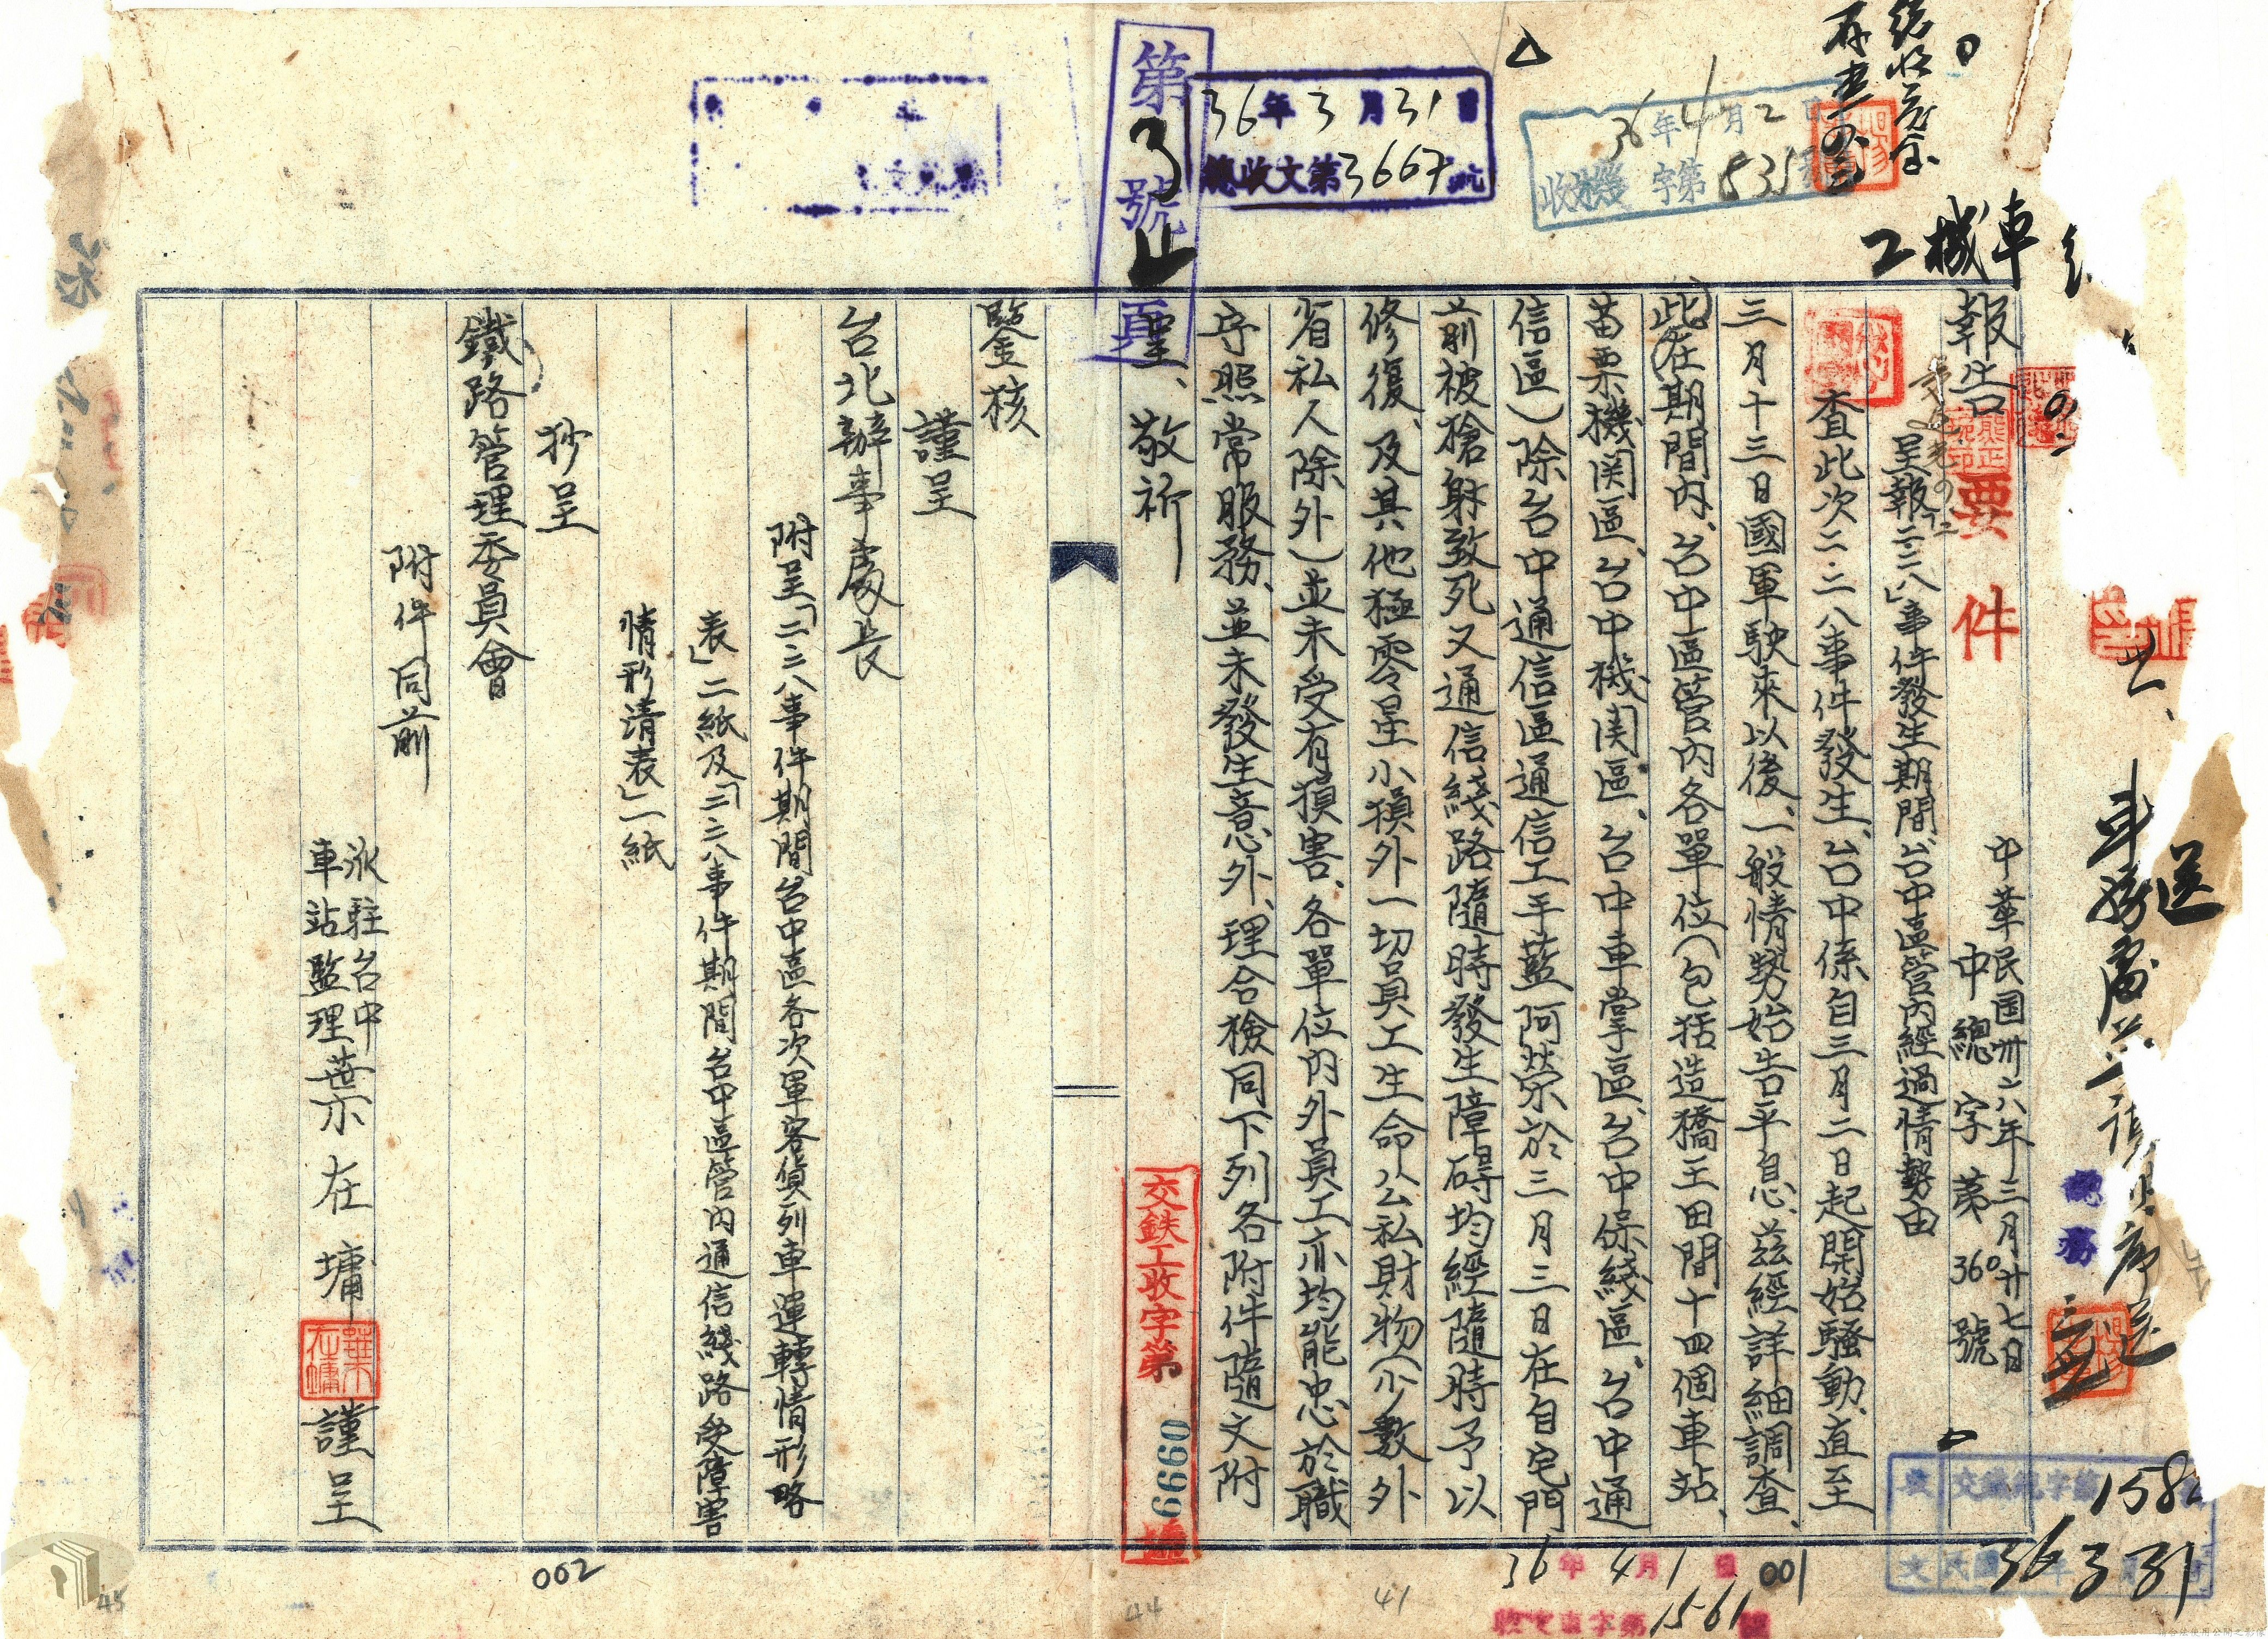 報告
中華民國卅六年三月廿七日
中總字第360號
要件
呈報「二二八」事件發生期間台中區管內經過情勢由
查此次二.二八事件發生、台中係自三月二日起開始騷動、直至
三月十三日國軍駛來以後、一般情勢始告平息、茲經詳細調查、
在此期間內、台中區管內各單位(包括造橋王田間十四個車站、
苗栗機関區、台中機関區、台中車掌區、台中保綫區、台中通
信區)除台中通信區通信工手藍阿榮於三月三日在自宅門
前被槍射致死又通信綫路隨時發生障碍均經隨時予以
修復、及其他極零星小損外一切員工生命公私財物(少數外
省私人除外)並未受有損害、各單位內外員工亦均能忠於職
守照常服務、並未發生意外、理合檢同下列各附件隨文附
呈、敬祈
鑒核
謹呈
台北辦事處長
附呈「二二八事件期間台中區各次軍客貨列車運轉情形略
表」二紙及「二二八事件期間台中區管內通信綫路受障害
情形清表」一紙
抄呈
鐵路管理委員會
附件同前
派駐台中
車站監理葉亦在墉
葉在墉
謹呈
第3號
頁
36年3月31日
總收文第3667號
36年4月2日
收機字第835號
機車
交鉄工收字第6660號
36年4月1日
收文車字第1561號
交鐵總字第158
36 3 31
001
002
41
44
45
總務
車務處
送